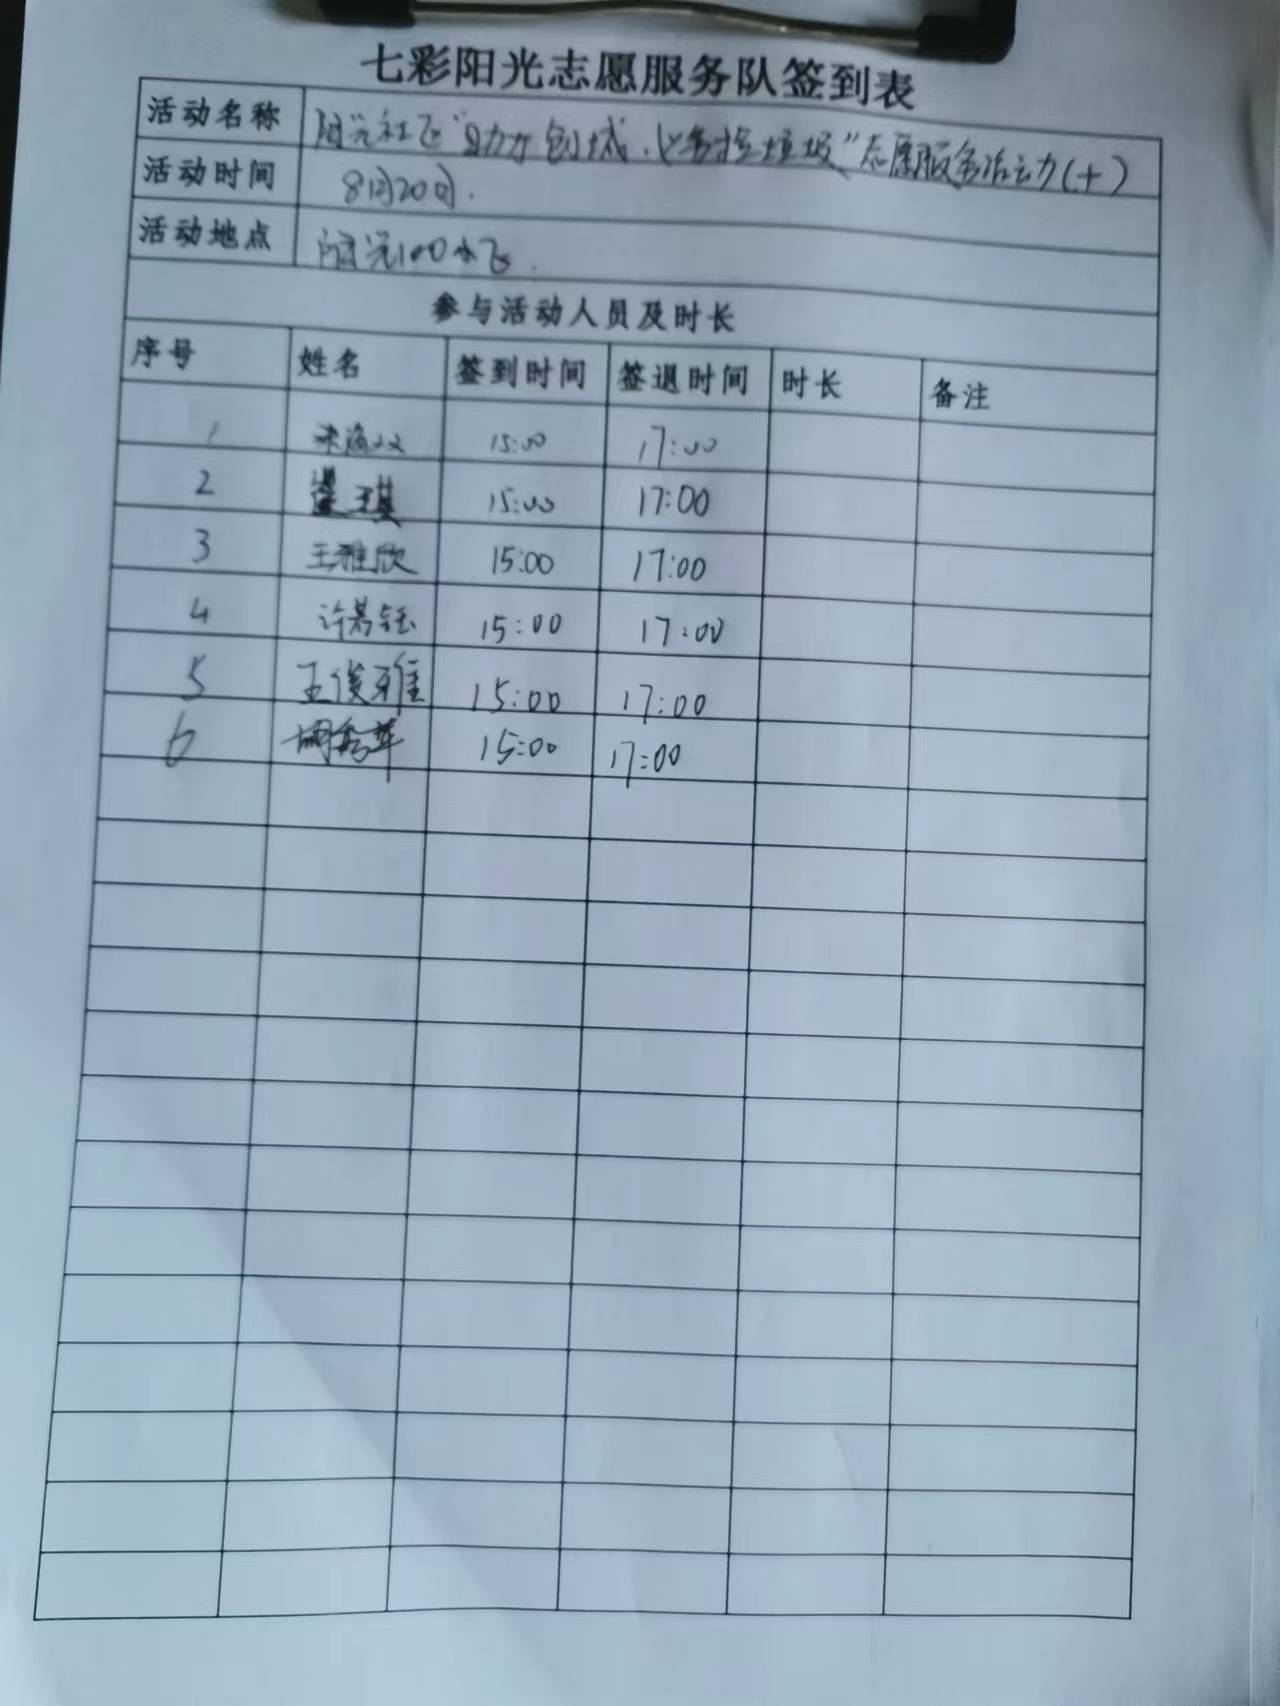 七彩阳光志愿服务队签到表
活动名称 阳光社区"助力创城.义务捡垃圾"志愿服务活动(十)
活动时间 8月20日.
活动地点 阳光100小区.
参与活动人员及时长
序号 姓名 签到时间 签退时间 时长 备注
1 15:00 17:00
2 15:00 17:00
3 王雅欣 15:00 17:00
4 许若钰 15:00 17:00
5 王俊雅 15:00 17:00
6 15:00 17:00